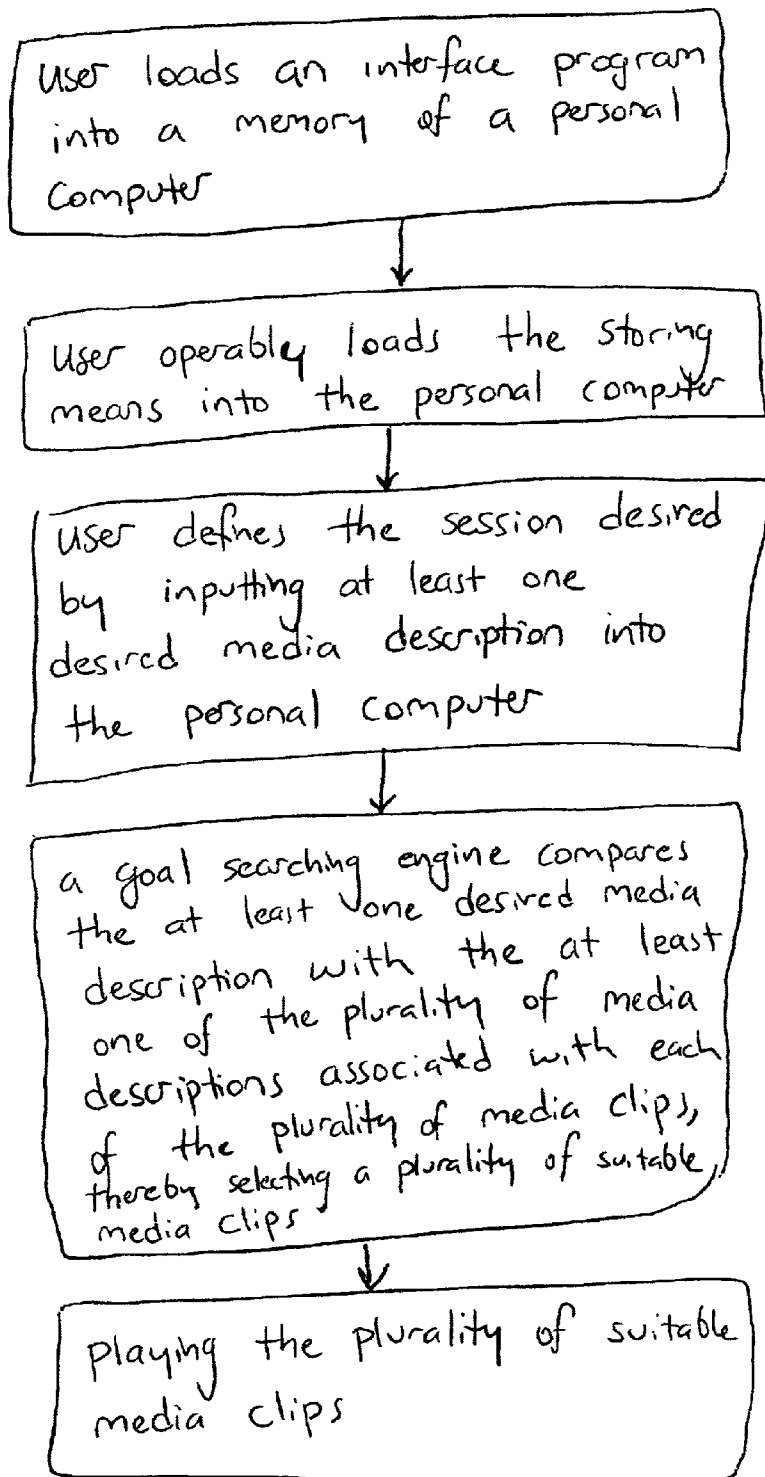 user loads an interface program
into a memory of a personal
computer
user operably loads the storing
means into the personal computer
user defines the session desired
by inputting at least one
desired media description into
the personal computer
a goal searching engine compares
the at least one desired media
description with the at least
one of the plurality of media
descriptions associated with each
of the plurality of media clips,
thereby selecting a plurality of suitable
media clips
playing the plurality of suitable
media clips